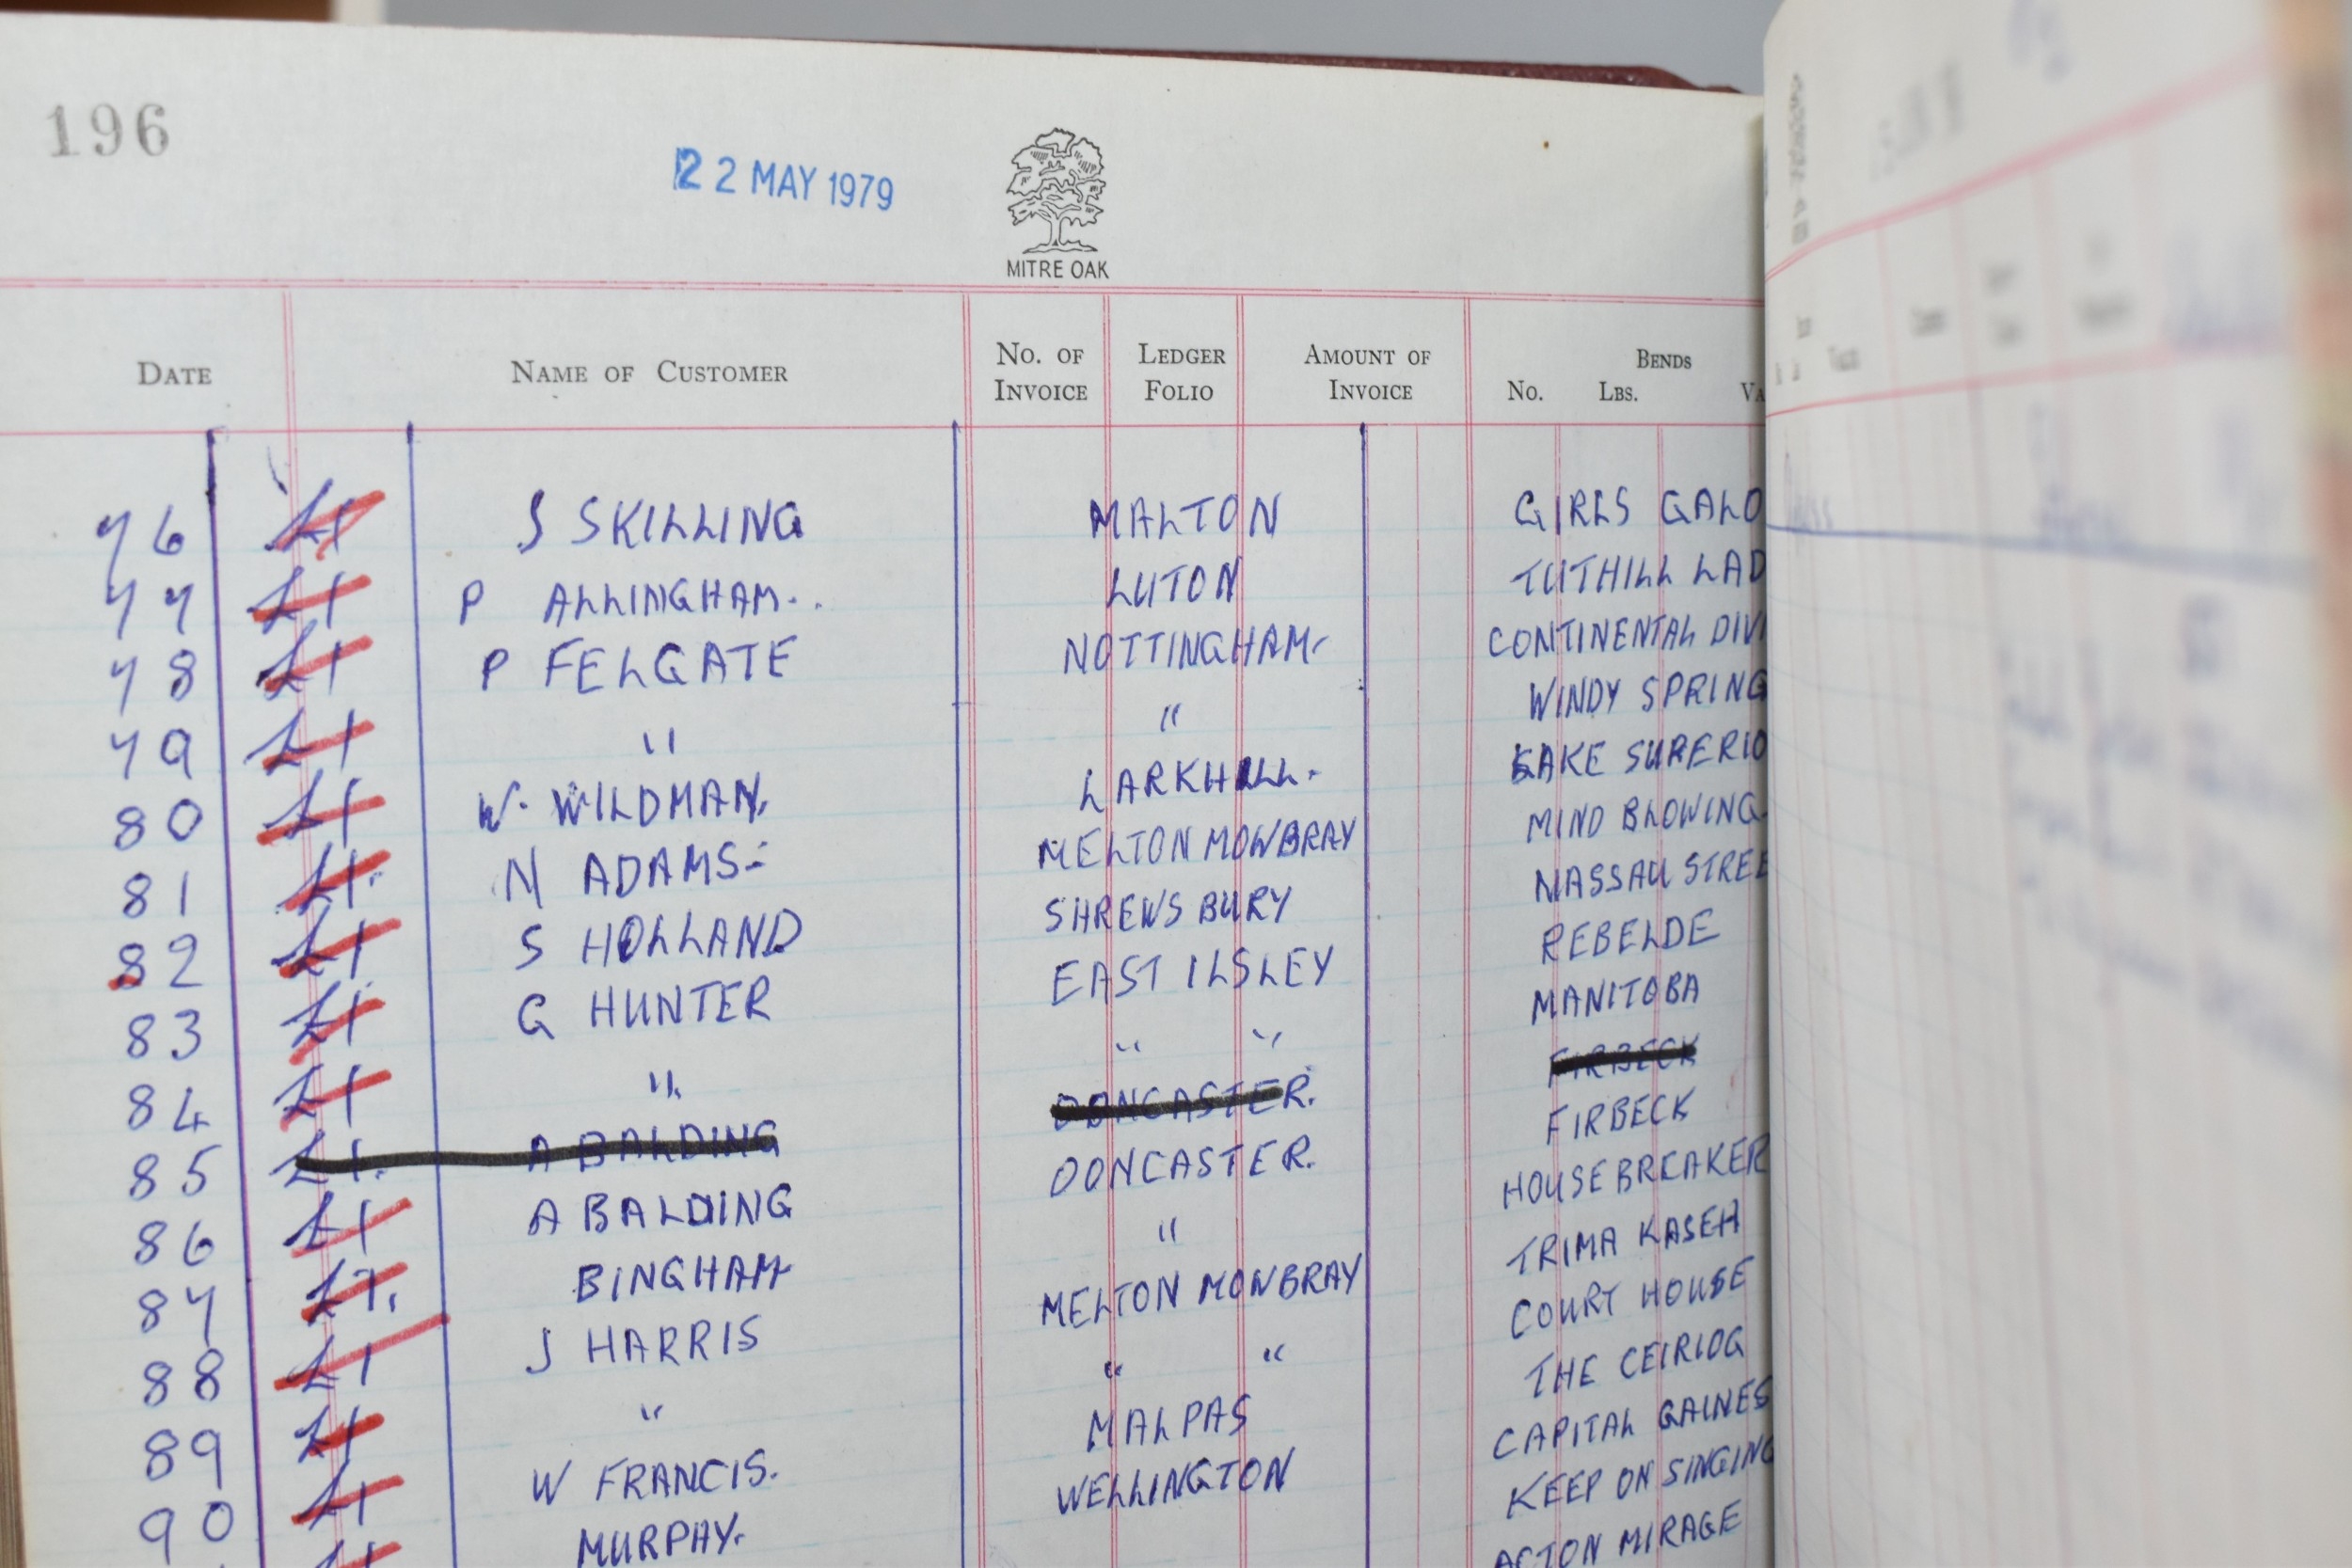 196
22 MAY 1979
MITRE OAK
DATE NAME OF CUSTOMER NO. OF INVOICE LEDGER FOLIO AMOUNT OF INVOICE BENDS
NO. LBS. VA
76 £1 S SKILLING MALTON GIRLS GALO
77 £1 P ALLINGHAM.. LUTON TUTHILL LAD
78 £1 P FELGATE NOTTINGHAM- CONTINENTAL DIVI
79 £1 " " WINDY SPRING
80 £1 W. WILDMAN. LARKHILL. LAKE SUPERIO
81 £1. N ADAMS- MELTON MOWBRAY MIND BLOWING
82 £1 S HOLLAND SHREWSBURY NASSAU STREE
83 £1 G HUNTER EAST ILSLEY REBELDE
84 £1 " " " MANITOBA
85 £1. A BALDING DONCASTER. FIRBECK
86 £1 A BALDING DONCASTER. FIRBECK
87 £1. BINGHAM " HOUSEBREAKER
88 £1 J HARRIS MELTON MOWBRAY TRIMA KASEH
89 £1 " " " COURT HOUSE
90 £1 W FRANCIS. MALPAS THE CEIRIOG
£1 MURPHY. WELLINGTON CAPITAL GAINES
KEEP ON SINGING
ACTON MIRAGE